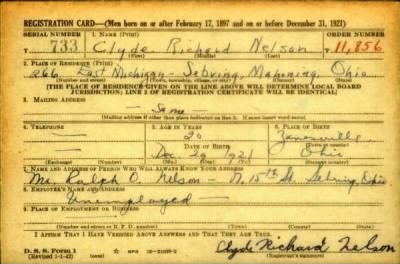 REGISTRATION CARD—(Men born on or after February 17, 1897 and on or before December 31, 1921)
SERIAL NUMBER 1. NAME (Print) ORDER NUMBER
733 Clyde Richard Nelson 11,856
(First) (Middle) (Last)
2. PLACE OF RESIDENCE (Print)
266 East Michigan - Sebring, Mahoning, Ohio
(Number and street) (Town, township, village, or city) (County) (State)
[THE PLACE OF RESIDENCE GIVEN ON THE LINE ABOVE WILL DETERMINE LOCAL BOARD
JURISDICTION; LINE 2 OF REGISTRATION CERTIFICATE WILL BE IDENTICAL]
3. MAILING ADDRESS
— Same
[Mailing address if other than place indicated on line 2. If same insert word same]
4. TELEPHONE 5. AGE IN YEARS 6. PLACE OF BIRTH
— 20 Zanesville
DATE OF BIRTH (Town or county)
— Dec 29 1921 Ohio
(Exchange) (Number) (Mo.) (Day) (Yr.) (State or country)
7. NAME AND ADDRESS OF PERSON WHO WILL ALWAYS KNOW YOUR ADDRESS
Mr. Ralph O. Nelson - N. 15th St. Sebring, Ohio
8. EMPLOYER'S NAME AND ADDRESS
Unemployed —
9. PLACE OF EMPLOYMENT OR BUSINESS
(Number and street or R. F. D. number) (Town) (County) (State)
I AFFIRM THAT I HAVE VERIFIED ABOVE ANSWERS AND THAT THEY ARE TRUE.
D. S. S. Form 1
(Revised 1-1-42) Clyde Richard Nelson